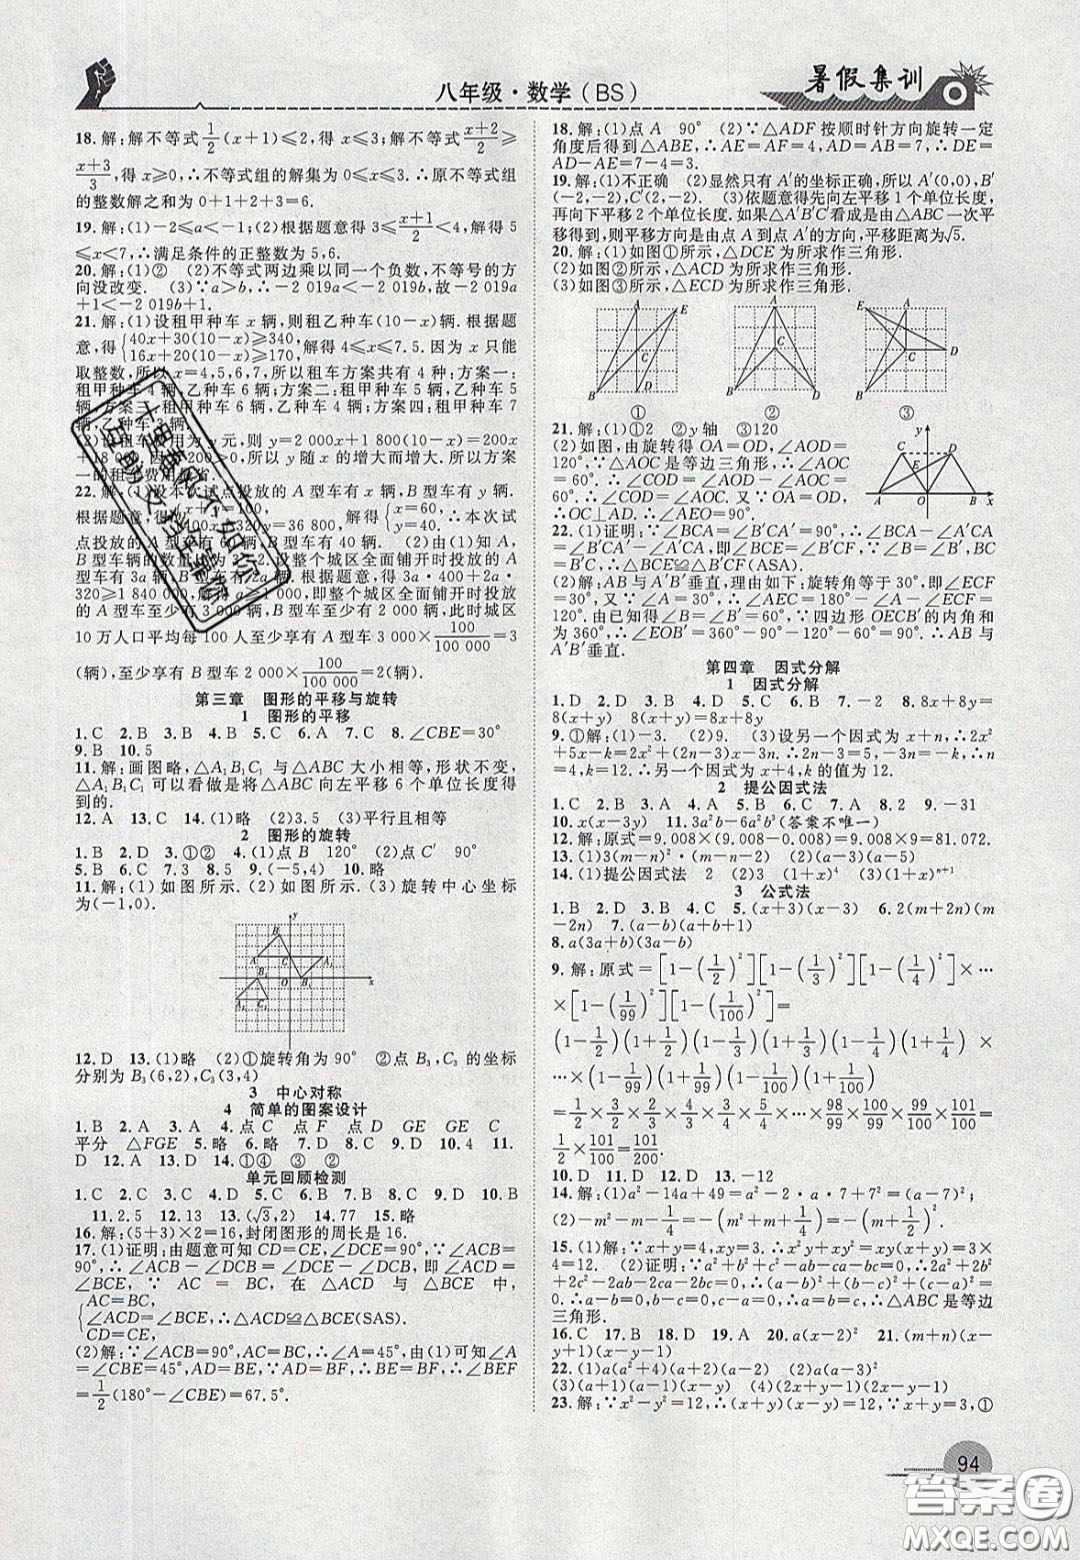 八年级·数学(BS)
暑假集训
18.解:解不等式1/2(x+1)≤2,得 x≤3;解不等式(x+2)/2≥
(x+3)/3,得 x≥0,∴不等式组的解集为 0≤x≤3.∴原不等式组
的整数解之和为 0+1+2+3=6.
19.解:(1)-2≤a<-1;(2)根据题意得 3≤(x+1)/2<4,解得
5≤x<7,∴满足条件的正整数为 5,6.
20.解:(1)② (2)不等式两边乘以同一个负数,不等号的方
向没改变. (3)∵a>b,∴-2 019a<-2 019b,故-2 019a
+1<-2 019b+1.
21.解:(1)设租甲种车 x 辆,则租乙种车(10-x)辆.根据题
意,得{40x+30(10-x)≥340, 16x+20(10-x)≥170,解得 4≤x≤7.5.因为 x 只能
取整数,所以 x=4,5,6,7,所以租车方案共有 4 种;方案一:
租甲种车 4 辆,乙种车 6 辆;方案二:租甲种车 5 辆,乙种车 5
辆;方案三:租甲种车 6 辆,乙种车 4 辆;方案四:租甲种车 7
辆,乙种车 3 辆.
用为 y 元,则 y=2 000x+1 800(10-x)=200x
+18 000.∵200>0,所以 y 随 x 的增大而增大.所以方案
一的租
22.解:(1)设本次试点投放的 A 型车有 x 辆,B 型车有 y 辆.
根据题意,得 x+y=100, 400x+320y=36 800,解得{x=60, y=40.∴本次试
点投放的 A 型车有 60 辆,B 型车有 40 辆. (2)由(1)知 A,
B 型车辆的数量 设整个城区全面铺开时投放的 A
型车 2a 辆.根据题意,得 3a·400+2a·
320≥1 840 000, 即整个城区全面铺开时投放
的 A 型车至少 3 000 辆,B 型车至少 2 000 辆,此时城区
10 万人口平均每 100 人至少享有 A 型车 3 000×100/100 000=3
(辆),至少享有 B 型车 2 000×100/100 000=2(辆).
第三章 图形的平移与旋转
1 图形的平移
1.C 2.B 3.B 4.B 5.C 6.A 7.C 8.∠CBE=30°
9.B 10.5
11.解:画图略,△A₁B₁C₁ 与△ABC 大小相等,形状不变,
△A₁B₁C₁ 可以看做是将△ABC 向左平移 6 个单位长度得
到的.
12.A 13.C 14.(1)略 (2)3 (3)平行且相等
2 图形的旋转
1.B 2.D 3.①② 4.(1)点B 120° (2)点C′ 90°
5.B 6.C 7.3 8.5 9.(-5,4) 10.略
11.解:(1)如图所示. (2)如图所示. (3)旋转中心坐标
为(-1,0).
12.D 13.(1)略 (2)①旋转角为 90° ②点 B₃,C₃ 的坐标
分别为 B₃(6,2),C₃(3,4)
3 中心对称
4 简单的图案设计
1.B 2.A 3.A 4.C 点C 点F 点D GE GE C
平分 △FGE 5.略 6.略 7.D 8.C 9.D 10.4 11.
D 12.A 13.D 14.①④ ③ ② ③
单元回顾检测
1.C 2.C 3.C 4.D 5.C 6.B 7.C 8.C 9.D 10.B
11.2.5 12.13 13.(√3,2) 14.77 15.略
16.解:(5+3)×2=16,封闭图形的周长是 16.
17.(1)证明:由题意可知 CD=CE,∠DCE=90°,∵∠ACB=
90°,∴∠ACB-∠DCB=∠DCE-∠DCB,即∠ACD=
∠BCE,∵ AC = BC, 在 △ACD 与 △BCE 中,
{AC=BC,
∠ACD=∠BCE,∴△ACD≌△BCE(SAS).
CD=CE,
(2)解:∵∠ACB=90°,AC=BC,∴∠A=45°,由(1)可知∠A
=∠CBE=45°,AD=BE,∵AD=BF,∴BE=BF,∴∠BEF
=1/2(180°-∠CBE)=67.5°.
18.解:(1)点A 90° (2)∵△ADF 按顺时针方向旋转一定
角度后得到△ABE,∴AE=AF=4,AD=AB=7,∴DE=
AD-AE=7-4=3.
19.解:(1)不正确 (2)显然只有 A′的坐标正确,所以 A′(0,0),B′
(-2,-2),C′(2,-2). (3)依题意得先向左平移 1 个单位长度,
再向下平移 2 个单位长度.如果△A′B′C′看成是由△ABC 一次平
移得到,则平移方向是由点 A 到点 A′的方向,平移距离为√5.
20.解:(1)如图①所示,△DCE 为所求作三角形.
(2)如图②所示,△ACD 为所求作三角形.
(3)如图③所示,△ECD 为所求作三角形.
① ② ③
21.解:(1)①2 ②y 轴 ③120
(2)如图,由旋转得 OA=OD,∠AOD=
120°,∵△AOC 是等边三角形,∴∠AOC
=60°.∴∠COD=∠AOD-∠AOC=
60°.∴∠COD=∠AOC.又∵OA=OD,
∴OC⊥AD.∴∠AEO=90°.
22.(1)证明:∵∠BCA=∠B′CA′=90°,∴∠BCA-∠A′CA
=∠B′CA′-∠A′CA,即∠BCE=∠B′CF,∵∠B=∠B′,BC
=B′C,∴△BCE≌△B′CF(ASA).
(2)解:AB与A′B′垂直,理由如下:旋转角等于 30°,即∠ECF
=30°,又∵∠A=30°,∴∠AEC=180°-∠A-∠ECF=
120°.由已知得∠B=∠B′=60°,∵四边形 OECB′的内角和
为 360°,∴∠EOB′=360°-60°-150°-60°=90°.∴AB 与
A′B′垂直.
第四章 因式分解
1 因式分解
1.D 2.D 3.B 4.D 5.C 6.B 7.D 8.8x+8y=
8(x+y) 8(x+y)=8x+8y
9.①解:(1)-3. (2)9. (3)设另一个因式为 x+n,∴2x²
+5x-k=2x²+(2n-3)x-3n.∴2n-3=5,k=3n.∴n=
4,k=12.∴另一个因式为 x+4,k 的值为 12.
2 提公因式法
1.C 2.B 3.B 4.B 5.C 6.C 7.A 8.2 9.-31
10.x(x-3y) 11.3a²b-6a²b³(答案不唯一)
12.解:原式=9.008×(9.008-0.008)=9.008×9=81.072.
13.(1)3(m-n)²·(m-2n) (2)(a-3)(a-5)
14.(1)提公因式法 2 (2)(1+x)⁴ (3)(1+x)ⁿ⁺¹
3 公式法
1.B 2.D 3.A 4.C 5.(x+3)(x-3) 6.2(m+2n)(m
-2n) 7.(a-b)(a+b+1)
8.a(3a+b)(3a-b)
9.解:原式=[1-(1/2)²][1-(1/3)²][1-(1/4)²]×…
×[1-(1/99)²][1-(1/100)²]=
(1-1/2)(1+1/2)(1-1/3)(1+1/3)(1-1/4)(1+1/4)×…
×(1-1/99)(1+1/99)(1-1/100)(1+1/100)
=1/2×3/2×2/3×4/3×3/4×5/4×…×98/99×100/99×99/100×101/100=
1/2×101/100=101/200.
10.D 11.D 12.D 13.-12
14.解:(1)a²-14a+49=a²-2×7×a+7²=(a-7)²;
(2)-m²-m-1/4=-(m²+m+1/4)=-(m+1/2)².
15.(1)解:∵x+y=4,xy=3.∴x²y+xy²=xy(x+y)=3×
4=12. (2)证明:∵a²+b²+c²-ab-ca-bc=0,∴2a²+2b²
+2c²-2ab-2ca-2bc=0.∴(a-b)²+(b-c)²+(c-a)²=
0.∴a-b=0,b-c=0,c-a=0.∴a=b=c.∴△ABC 是等边
三角形.
16.C 17.B 18.D 19.A 20.a(x-2)² 21.(m+n)(x
-1)(x-1)
22.(1)(a²+4)(a+2)(a-2) (2)a(a-3)²
(3)(a+1)(a-1)(x-y) (4)(x-2y)²(x+2y)²
23.解:∵x²-y²=12,∴(x+y)(x-y)=12,∵x+y=3,①
94
答案圈
MXQE.COM